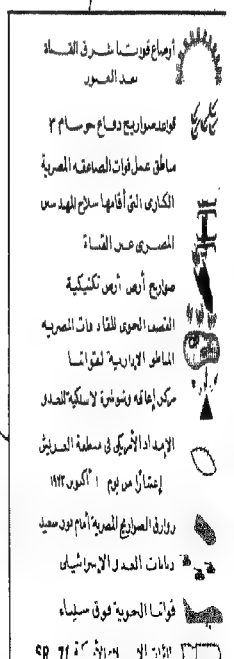 أوضاع قواتنا شرق القناة
بعد العبور
قواعد صواريخ دفاع جو سام ٣
مناطق عمل قوات الصاعقة المصرية
الكبارى التى أقامها سلاح المهندسين
المصرى عبر القناة
صواريخ أرض أرض تكتيكية
القصف الجوى للقاذفات المصرية
المناطق الإدارية لقواتنا
مركز إعاقة وشوشرة لاسلكية للعدو
الإمداد الأمريكى فى منطقة العريش
إعتباراً من يوم ١ أكتوبر ١٩٧٣
زوارق الصواريخ المصرية أمام بورسعيد
دبابات العدو الإسرائيلى
قواتنا الجوية فوق سيناء
SR 71